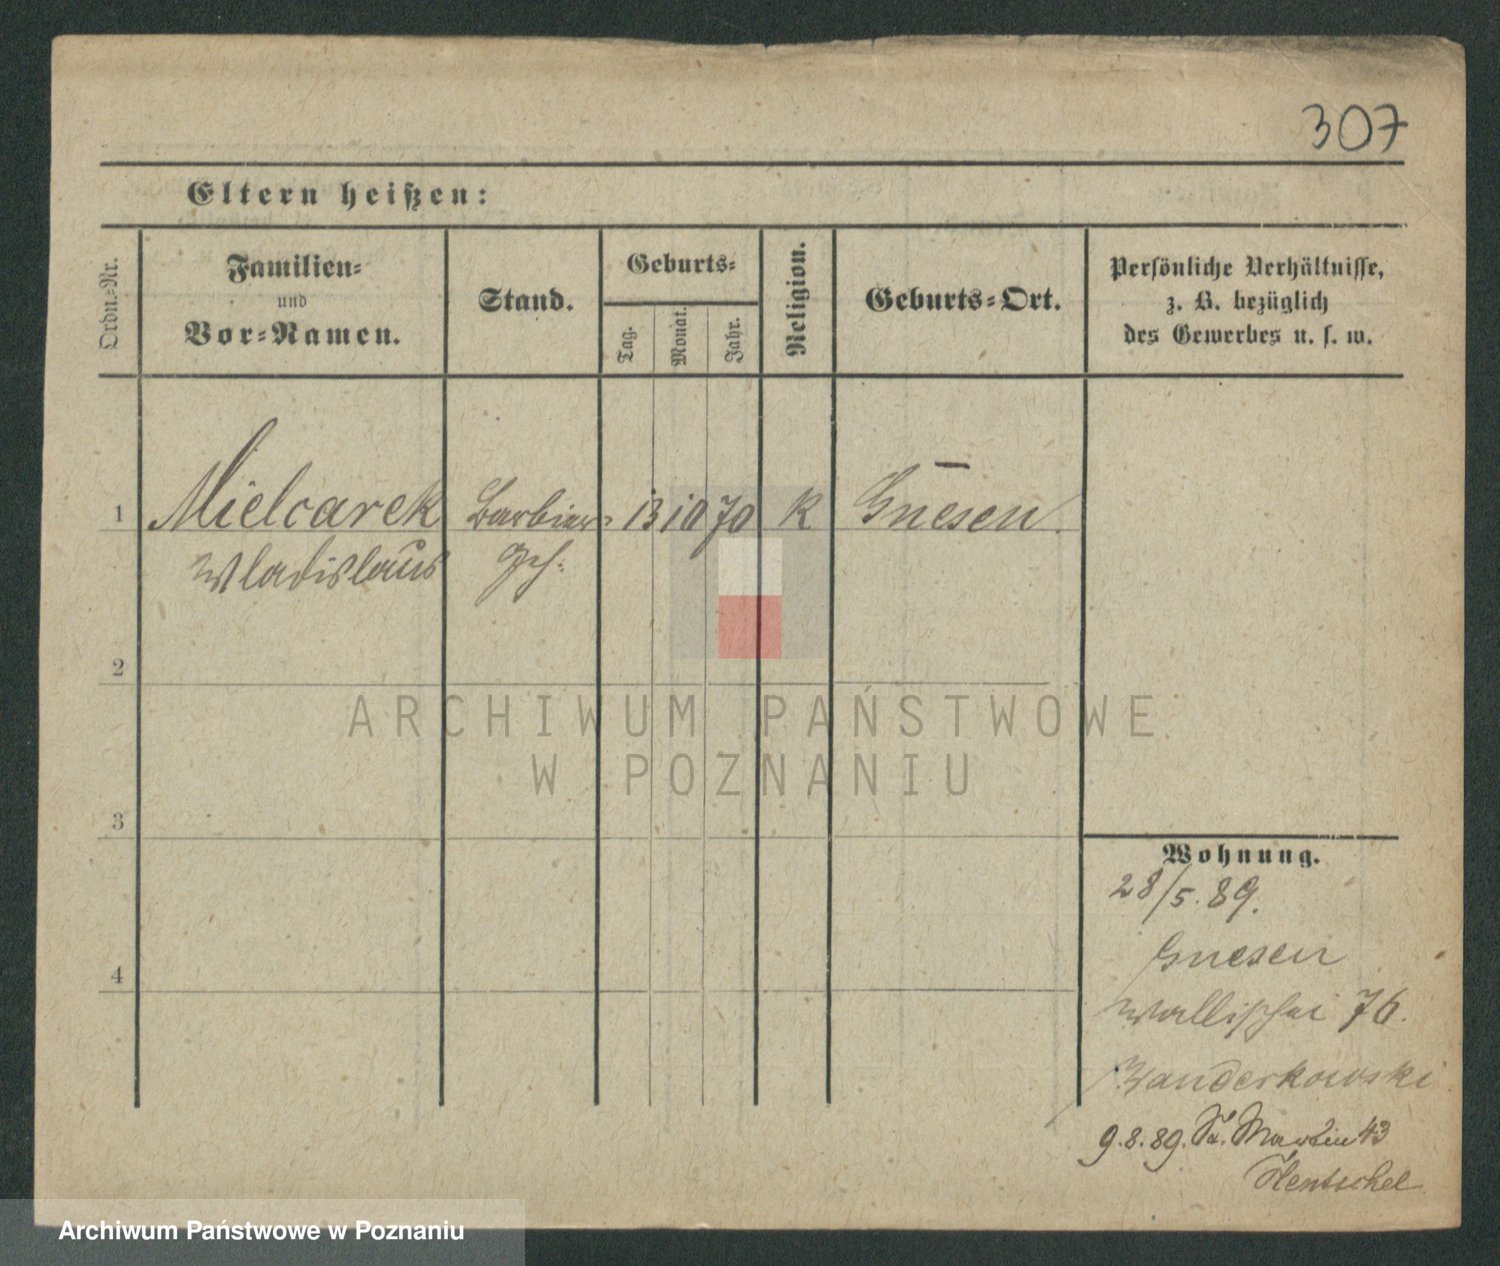 307
Eltern heißen:
Ordn.-Nr.
Familien-
und
Vor-Namen.
Stand.
Geburts-
Tag.
Monat.
Jahr.
Religion.
Geburts-Ort.
Persönliche Verhältnisse,
z. B. bezüglich
des Gewerbes u. s. w.
1 Mielcarek Barbier- 13 10 70 K Gnesen.
Wladislaus Geh:
2
3
4
Wohnung.
28/5. 89.
Gnesen
Wallischei 76.
9.8.89. St. Martin 43
Hentschel
ARCHIWUM PAŃSTWOWE
W POZNANIU
Archiwum Państwowe w Poznaniu